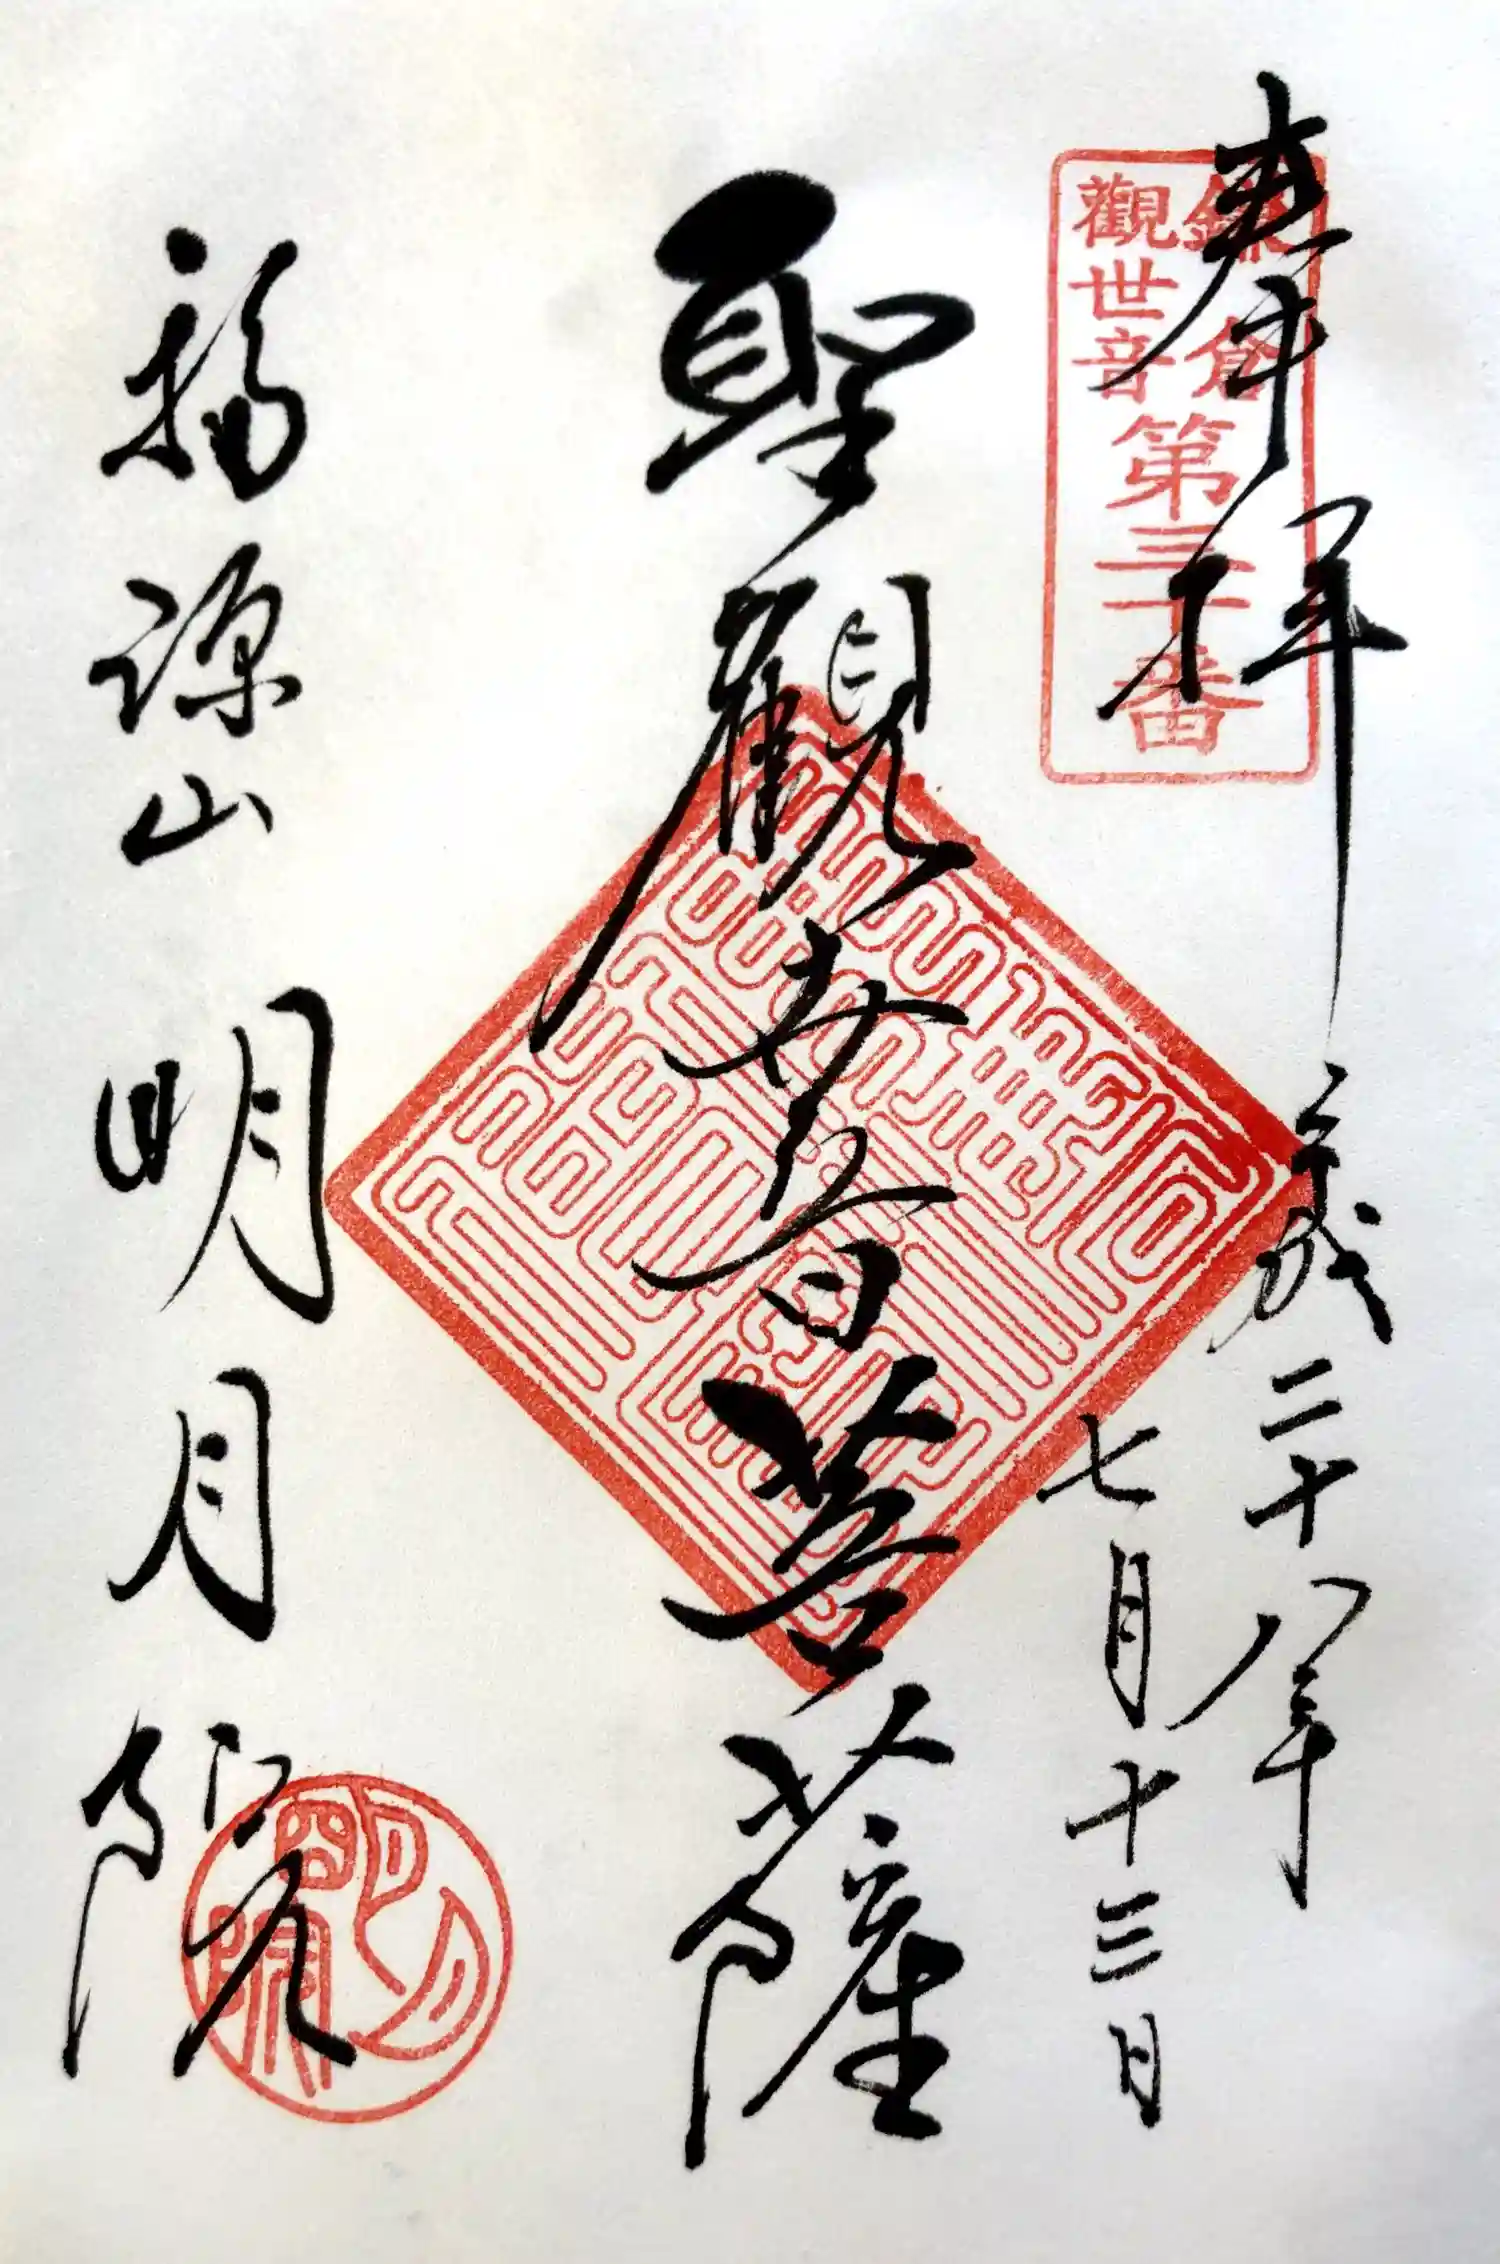 奉拝
鎌倉
觀世音
第三十番
平成二十八年
七月十三日
聖觀世音菩薩
福源山
明月院
明月院